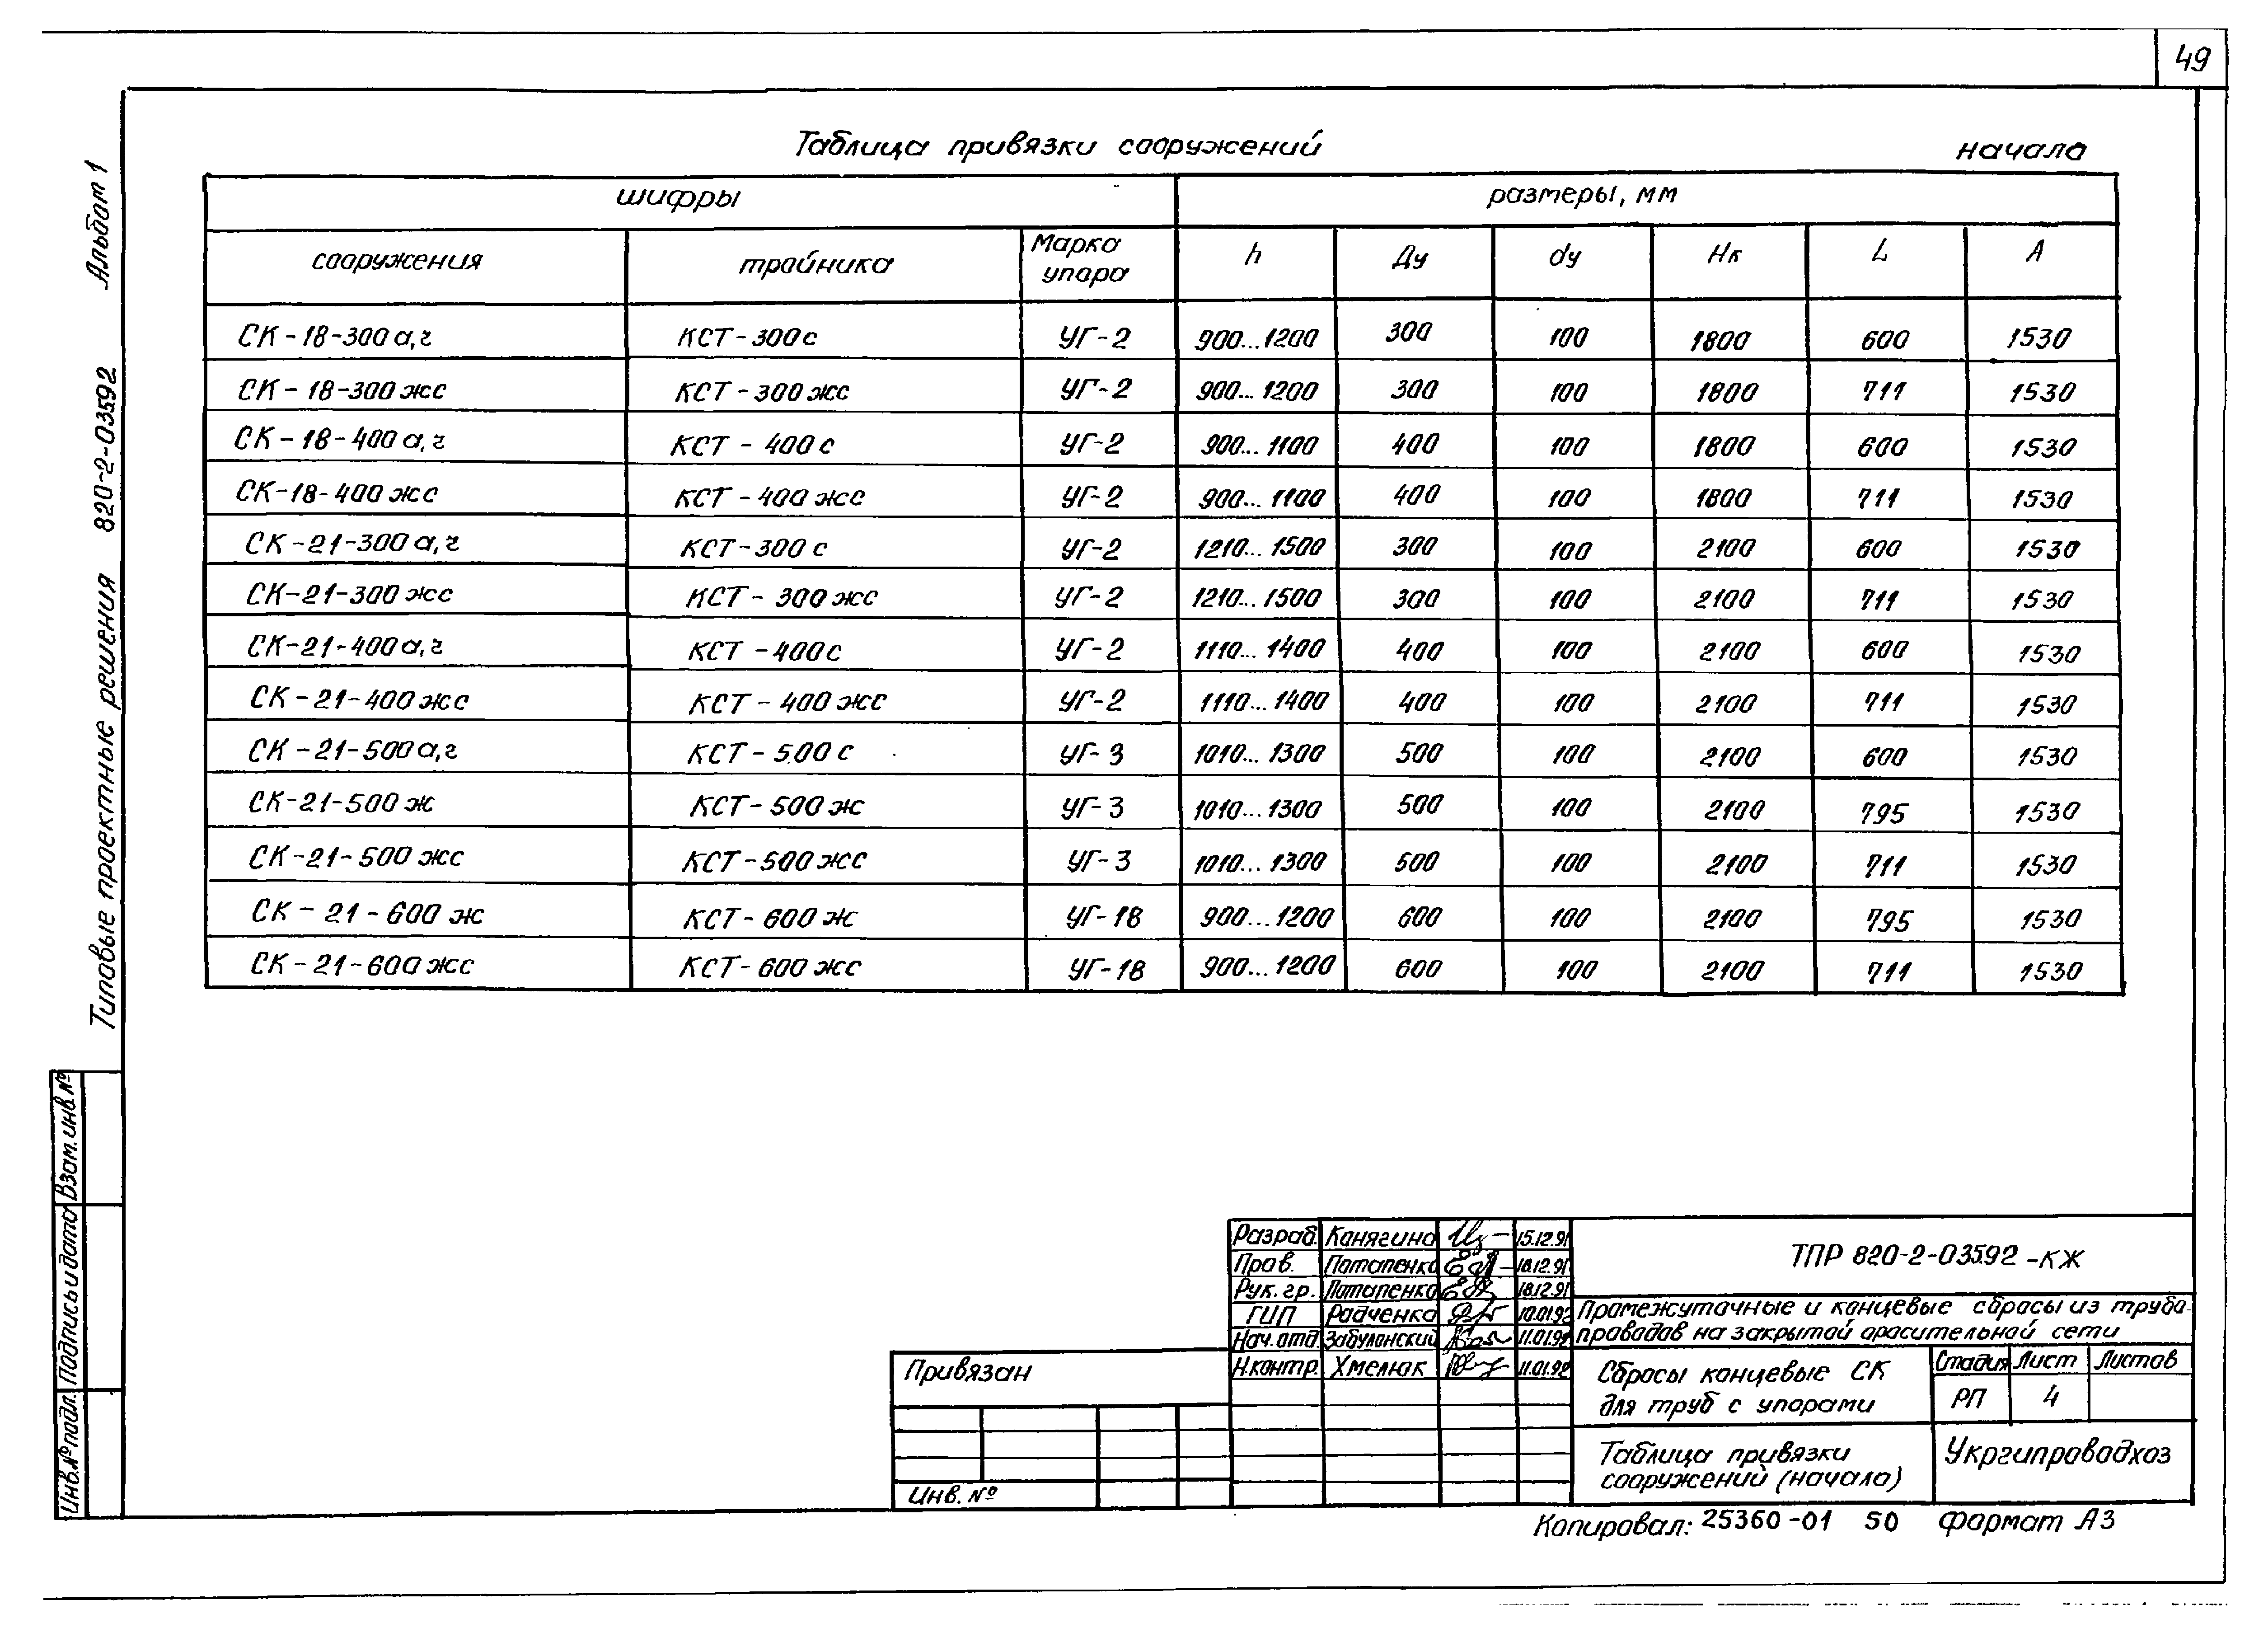 49
Таблица привязки сооружений
начало
шифры размеры, мм
сооружения тройника Марка упара h Ду dy Нк L А
СК-18-300 а,г КСТ-300с УГ-2 900...1200 300 100 1800 600 1530
СК-18-300 жс КСТ-300 жс УГ-2 900...1200 300 100 1800 711 1530
СК-18-400 а,г КСТ-400 с УГ-2 900...1100 400 100 1800 600 1530
СК-18-400 жс КСТ-400 жс УГ-2 900...1100 400 100 1800 711 1530
СК-21-300 а,г КСТ-300 с УГ-2 1210...1500 300 100 2100 600 1530
СК-21-300 жс КСТ-300 жс УГ-2 1210...1500 300 100 2100 711 1530
СК-21-400 а,г КСТ-400с УГ-2 1110...1400 400 100 2100 600 1530
СК-21-400 жс КСТ-400 жс УГ-2 1110...1400 400 100 2100 711 1530
СК-21-500 а,г КСТ-500 с УГ-3 1010...1300 500 100 2100 600 1530
СК-21-500 ж КСТ-500 ж УГ-3 1010...1300 500 100 2100 795 1530
СК-21-500 жс КСТ-500 жс УГ-3 1010...1300 500 100 2100 711 1530
СК-21-600 ж КСТ-600 ж УГ-18 900...1200 600 100 2100 795 1530
СК-21-600 жс КСТ-600 жс УГ-18 900...1200 600 100 2100 711 1530
Типовые проектные решения 820-2-03592 Альбом 1
Взам.инв.№
Подпись и дата
Инв.№ подл.
Привязан
Инв. №
Разраб. Канягина 15.12.91
Пров. Потапенко 18.12.91
Рук. гр. Потапенко 18.12.91
ГИП Радченко 10.01.92
Нач. отд. Забуланский 11.01.92
Н.контр. Хмелюк 11.01.92
ТПР 820-2-03592-КЖ
Промежуточные и концевые сбросы из трубо-
проводов на закрытой оросительной сети
Сбросы концевые СК
для труб с упорами
Стадия Лист Листов
РП 4
Таблица привязки
сооружений (начало)
Укргипроводхоз
Копировал: 25360-01 50 формат А3